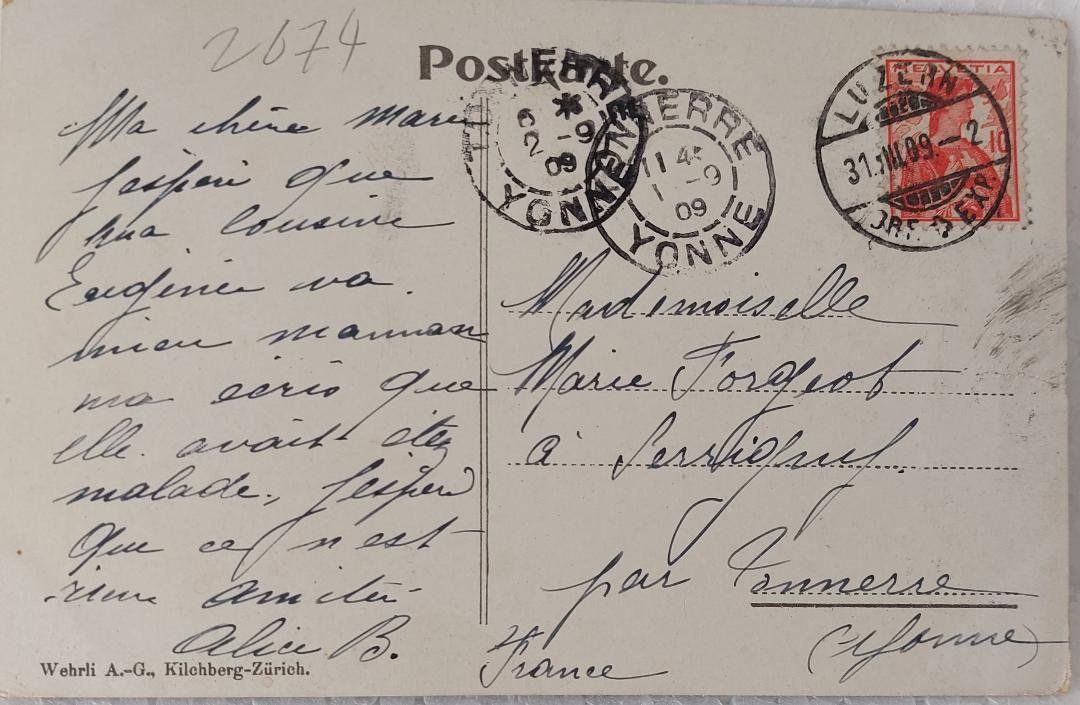 2674
Postkarte.
HELVETIA
10
LUZERN
31.VIII.09.-2
BRF. EXP.
TONNERRE
6 * -9
2
09
YONNE
TONNERRE
11 45
1 -9
09
YONNE
Ma chère Marie
J'espère que
ma cousine
Eugénie va
mieu maman
ma ecris que
elle avait étez
malade, J'espère
que ce n'est
rien amitié
Alice B.
Mademoiselle
Marie Forgeot
à Serrigny
par Tonnerre
(Yonne)
France
Wehrli A.-G., Kilchberg-Zürich.